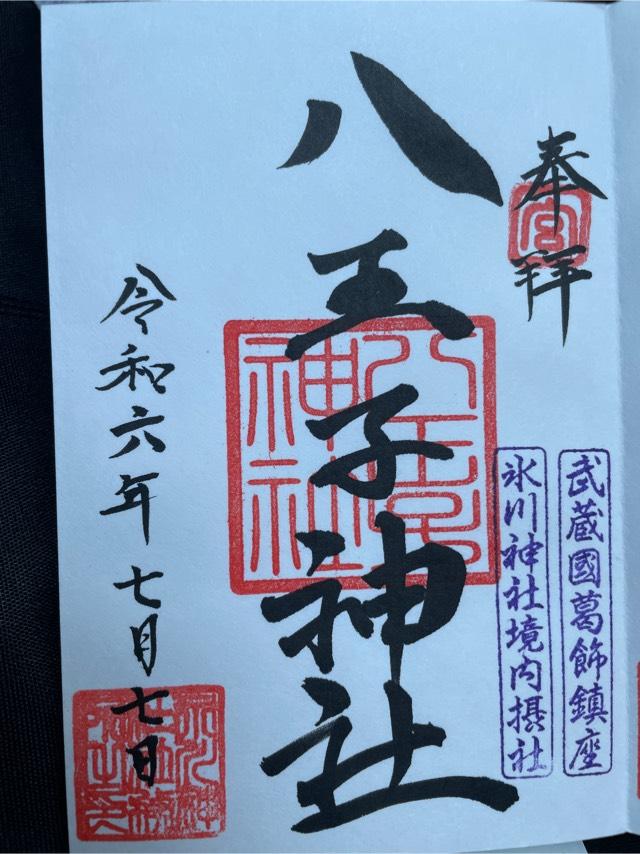 奉拝
武蔵國葛飾鎮座
氷川神社境内摂社
八王子神社
令和六年七月七日